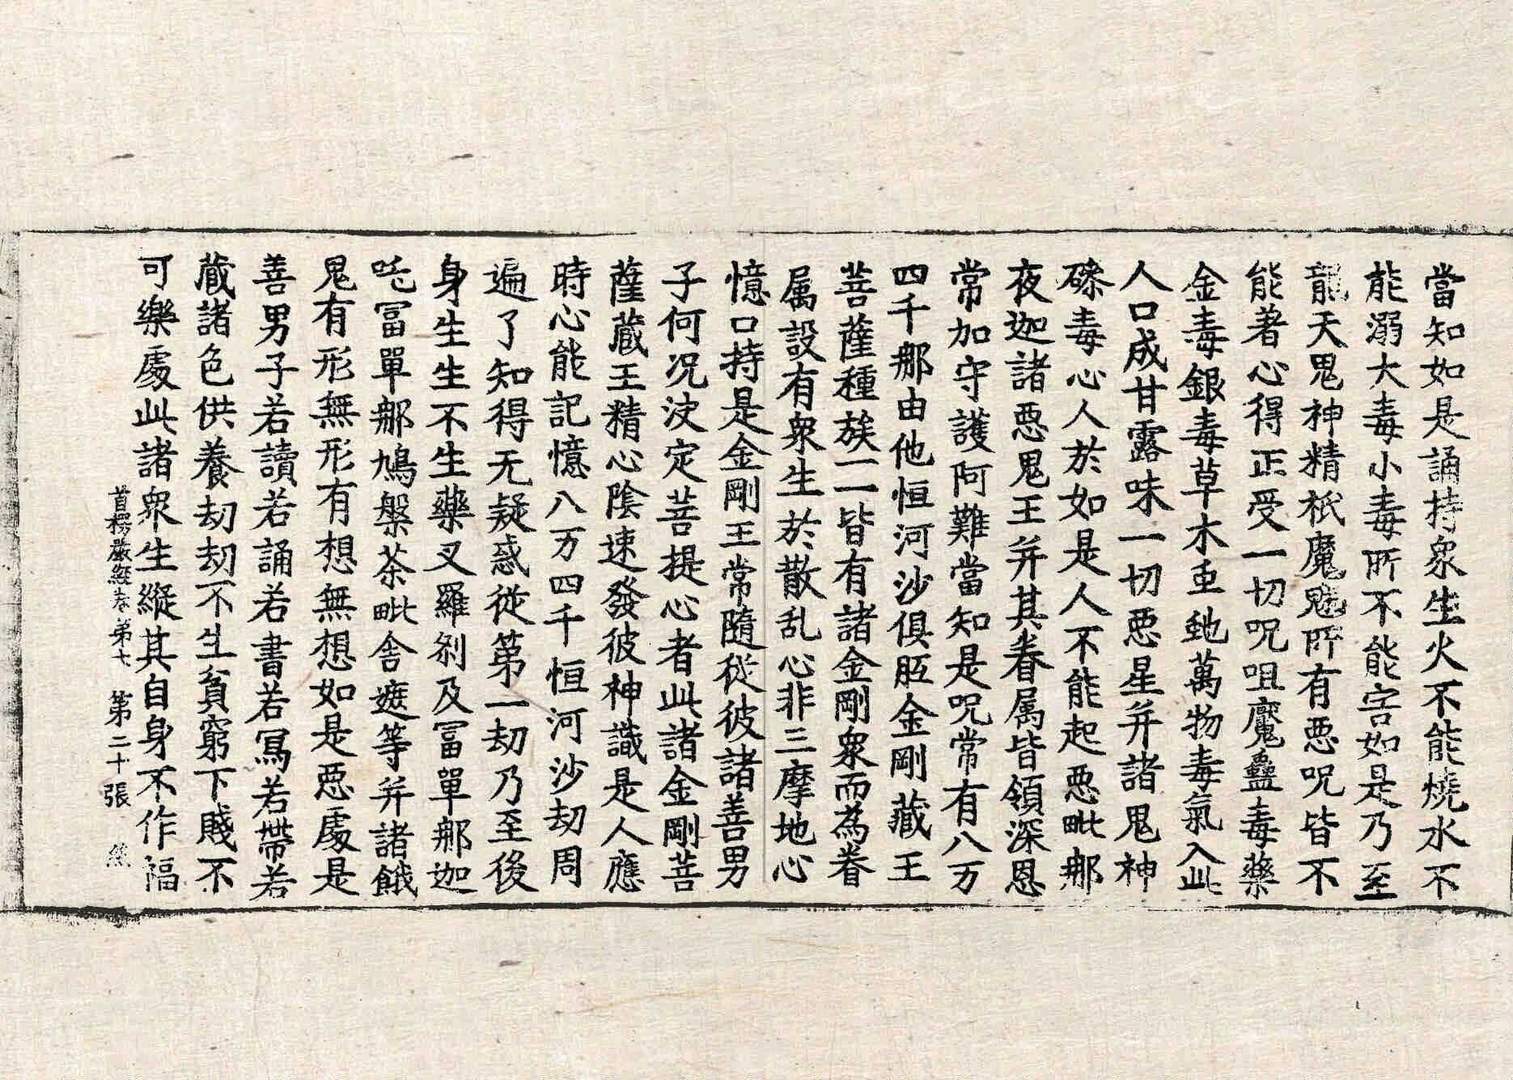 當知如是誦持衆生火不能燒水不
能溺大毒小毒所不能害如是乃至
龍天鬼神精衹魔魅所有惡呪皆不
能著心得正受一切呪咀魘蠱毒藥
金毒銀毒草木虫虵萬物毒氣入此
人口成甘露味一切惡星幷諸鬼神
磣毒心人於如是人不能起惡毗那
夜迦諸惡鬼王幷其眷属皆領深恩
常加守護阿難當知是呪常有八万
四千那由他恒河沙俱胝金剛藏王
菩薩種族一一皆有諸金剛衆而為眷
属設有衆生於散乱心非三摩地心
憶口持是金剛王常隨從彼諸善男
子何况决定菩提心者此諸金剛菩
薩藏王精心隂速發彼神識是人應
時心能記憶八万四千恒河沙劫周
遍了知得无疑惑從第一劫乃至後
身生生不生藥叉羅剎及富單那迦
吒富單那鳩槃荼毗舍遮等幷諸餓
鬼有形無形有想無想如是惡處是
善男子若讀若誦若書若冩若帶若
藏諸色供養劫劫不生貧窮下賤不
可樂處此諸衆生縱其自身不作福
首楞嚴經卷第七 第二十張